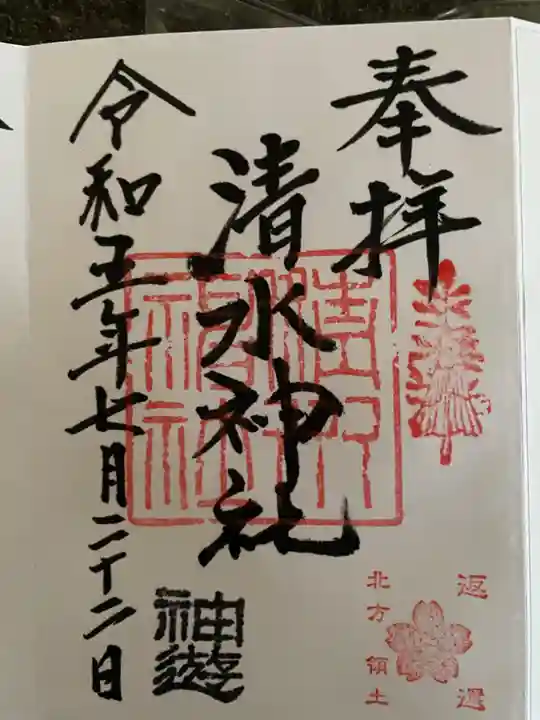 奉拝
清水神社
令和五年七月二十二日
神遊
返還
北方領土